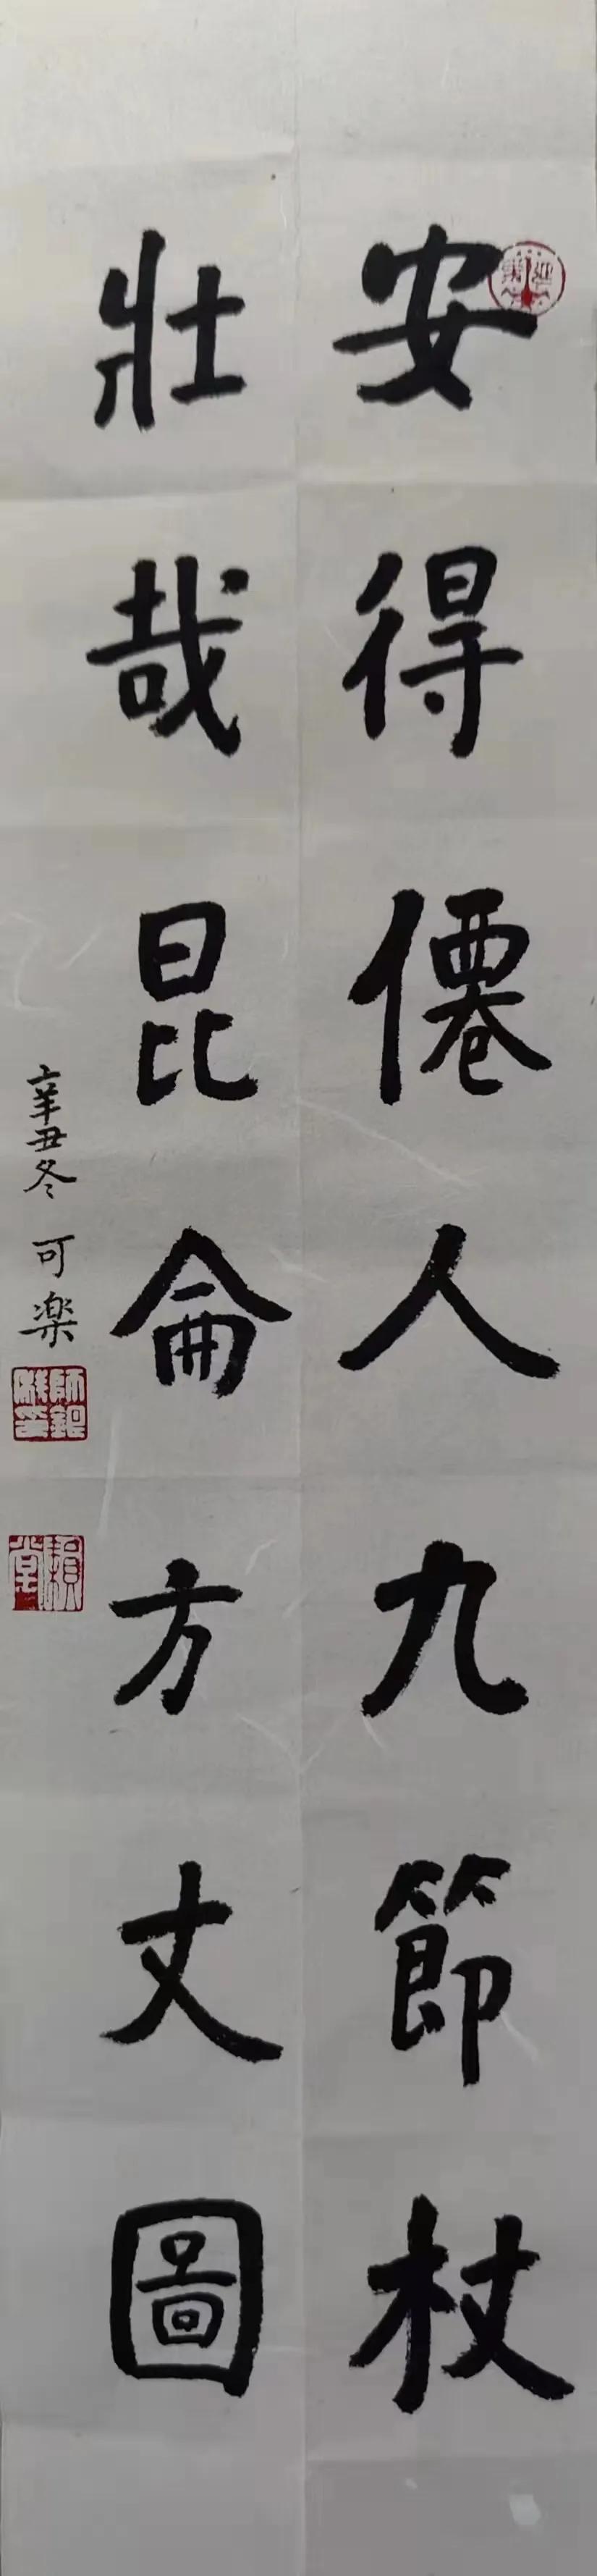 安得僊人九節杖
壯哉昆侖方丈圖
辛丑冬 可樂